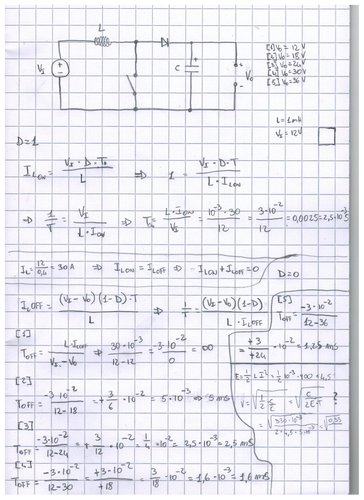 L
[1] V₀ = 12 V
[2] V₀ = 18 V
[3] V₀ = 24 V
[4] V₀ = 30 V
[5] V₀ = 36 V
V_I
C
V₀
L = 1 mH
V_I = 12 V
D = 1
I_L ON = V_I · D · T / L ⇒ 1 = V_I · D · T / L · I_L ON
⇒ 1/T = V_I / L · I_L ON ⇒ T_ON = L · I_L ON / V_I = 10⁻³ · 30 / 12 = 3 · 10⁻² / 12 = 0,0025 = 2,5 · 10⁻³
I_L = 12 / 0,4 = 30 A ⇒ I_L ON = I_L OFF ⇒ I_L ON + I_L OFF = 0
D = 0
I_L OFF = (V_I - V₀)(1 - D) · T / L ⇒ 1/T = (V_I - V₀)(1 - D) / L · I_L OFF
[1]
T_OFF = L · I_L OFF / V_I - V₀ ⇒ 30 · 10⁻³ / 12 - 12 = -3 · 10⁻² / 0 = ∞
[2]
T_OFF = -3 · 10⁻² / 12 - 18 = +3 / 6 · 10⁻² = 5 · 10⁻³ ⇒ 5 ms
[3]
T_OFF = -3 · 10⁻² / 12 - 24 = +3 / 12 · 10⁻² = 1/4 · 10⁻² = 2,5 · 10⁻³ = 2,5 ms
[4]
T_OFF = -3 · 10⁻² / 12 - 30 = +3 · 10⁻² / +18 = 3 / 18 · 10⁻² = 1,6 · 10⁻³ = 1,6 ms
[5]
T_OFF = -3 · 10⁻² / 12 - 36
= +3 / +24 · 10⁻² = 1,25 ms
E = 1/2 L I² = 1/2 10⁻³ · 900 = 4,5